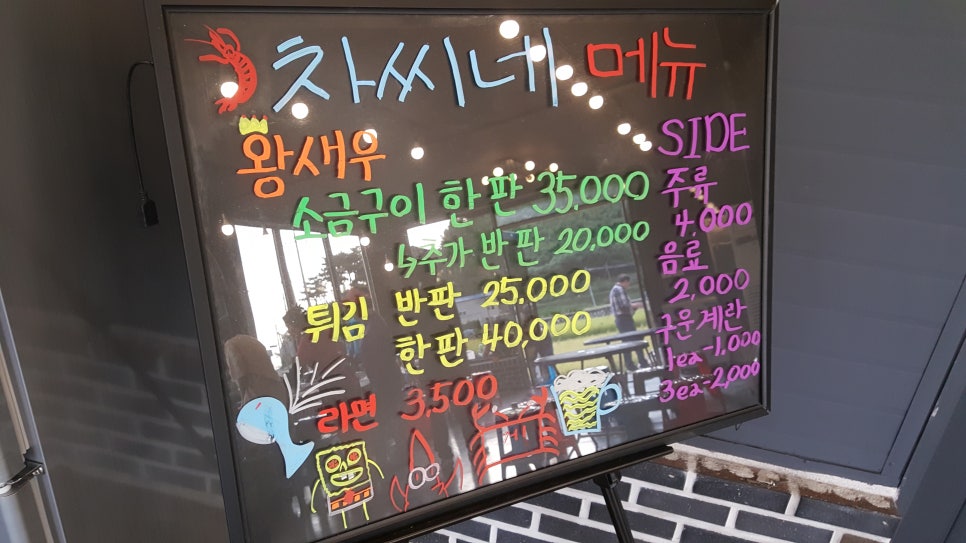 차씨네 메뉴
왕새우
소금구이 한판 35,000
↳추가 반판 20,000
튀김 반판 25,000
한판 40,000
라면 3,500
SIDE
주류
4,000
음료
2,000
구운계란
1ea-1,000
3ea-2,000